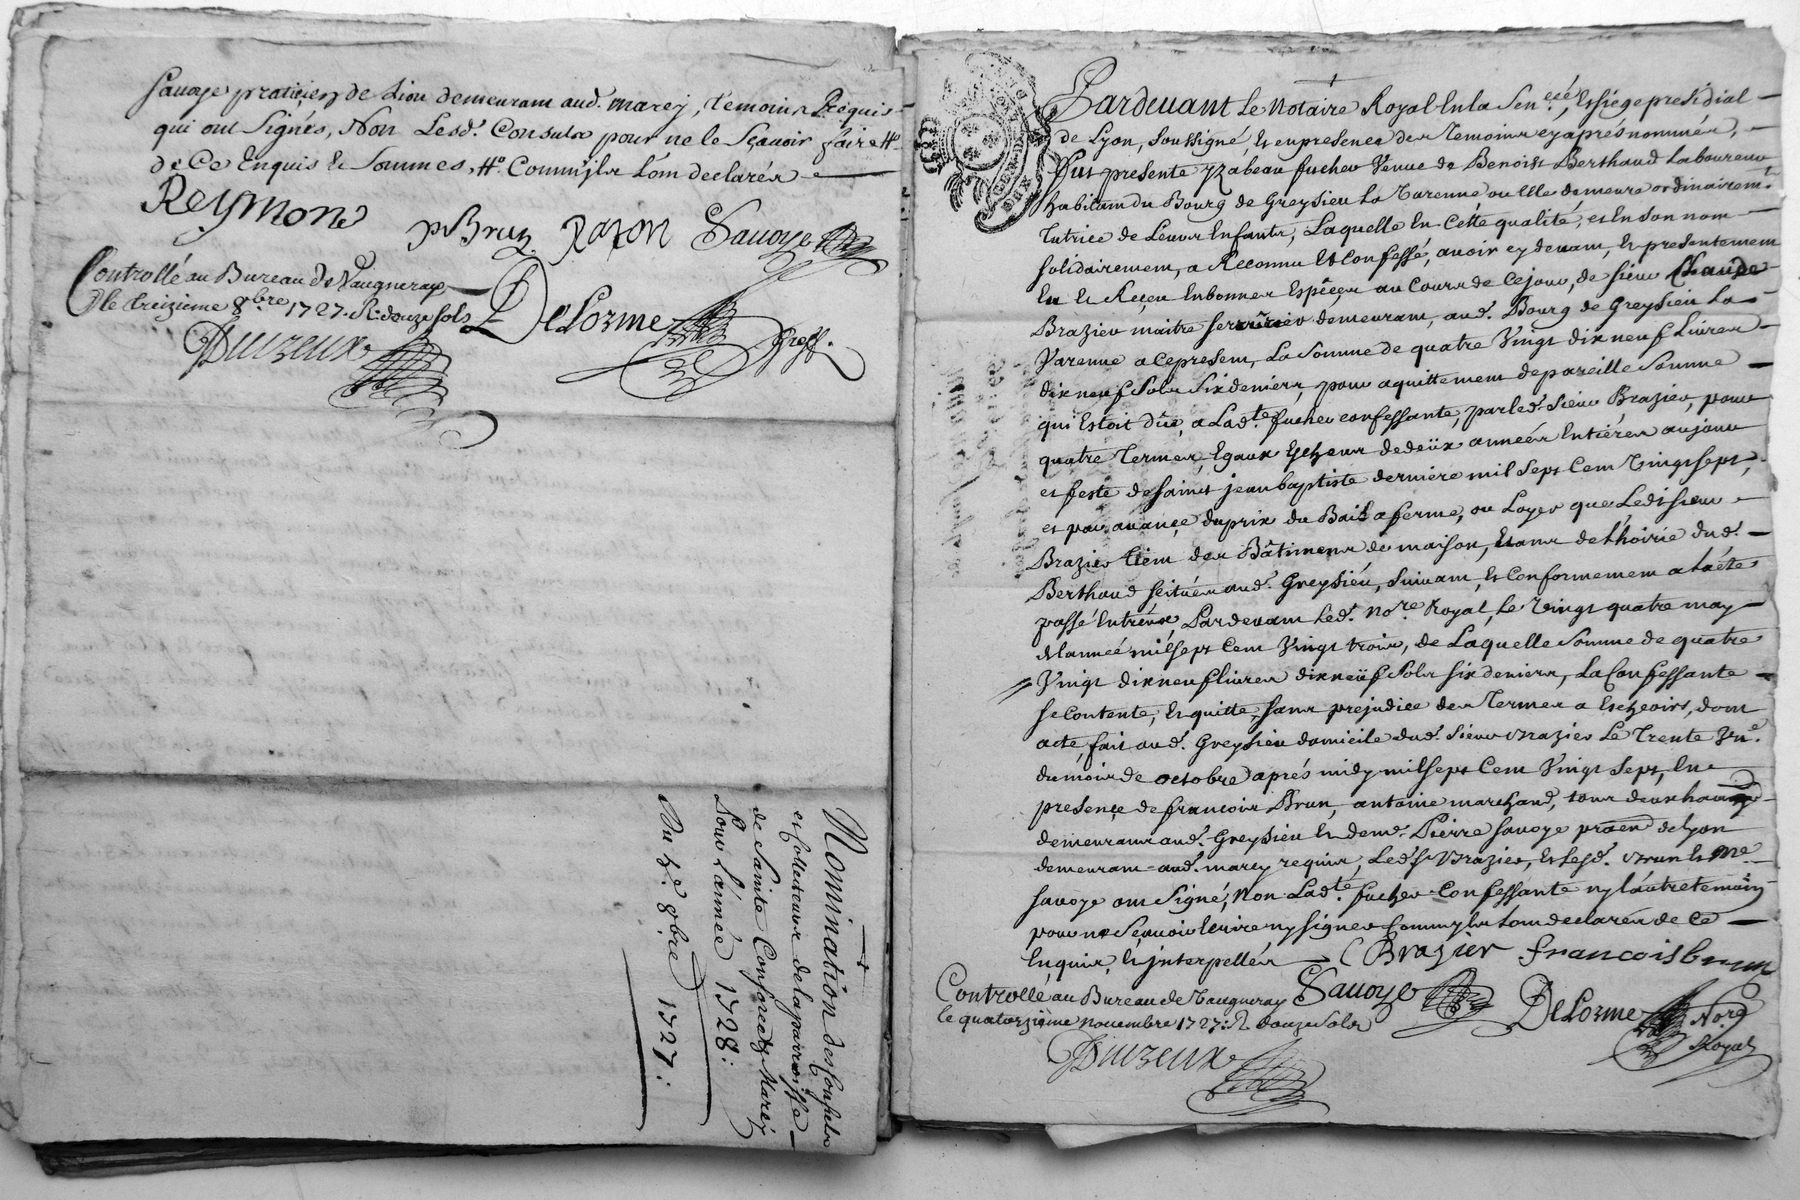 Savoye praticien de Lion demeurant aud. marcy, temoins Requis
qui ont Signés, Non Lesd. Consuls pour ne le Sçavoir faire
de Ce Enquis & Sommés, Comm'ils L'ont declarés
Reymond pBrun Razon Savoye
Controllé au Bureau de Vaugneray
le treizieme 8bre 1727. R. douze sols
Duizeux
DeLorme Greff.
Nomination des Consuls
et Collecteurs de la parroisse
de Sainte Consorce & Marcy
Pour L'année 1728:
Du 8bre 1727:
Pardevant Le Notaire Royal En la Sen.ceé, & siége presidial
de Lyon, Soussigné, & en presence des Temoins cy aprés nommés,
Fut presente yzabeau fucher Veuve de Benoist Berthaud Laboureur
habitant du Bourg de Greysieu La Varenne ou Elle demeure ordinairemt.
Tutrice de Leurs Enfants, Laquelle En Cette qualité, et En Son nom
solidairement, a Reconnu Et Confessé, avoir cy devant, & presentement
Eu & Reçeu En bonnes Espêces au Cours de Cejour, de sieur Claude
Brazier maitre serrurier demeurant, aud. Bourg de Greysieu La
Varenne a Ce present, La Somme de quatre Vingt dix neuf Livres
dix neuf Sols Six deniers, pour aquittement de pareille Somme
qui Estoit düe, a Lad.te fucher confessante, par led. Sieur Brazier, pour
quatre Termes, Egaux Echeus de deüx années Entiéres au jour
et feste de saint jean baptiste derniere mil Sept Cent Vingt sept,
et pour avançe du prix du Bail a ferme, ou Loyer que Ledit sieur
Brazier tient des Bâtiments de maison, Etant de L'hoirie dud.
Berthaud scitués aud. Greysieu, Suivant, & Conformement a L'acte
passé Entr'eux Pardevant Led. No.re Royal, Le Vingt quatre may
de L'année mil Sept Cent Vingt trois, de Laquelle Somme de quatre
Vingt dix neuf Livres dix neüf Sols Six deniers, La Confessante
se Contente, & quitte, sans prejudice des Termes a Escheoirs, dont
acte, fait aud. Greysieu domicile dud. Sieur Brazier Le Trente Vne.
du mois de octobre aprés midy mil Sept Cent Vingt Sept, En
presençe de francois Brun, antoine marchand, tous deux
demeurants aud. Greysieu & de me. Pierre Savoye praen de Lyon
demeurant aud. marcy requis, Led. Sr Brazier, & Lesd. Brun & Me.
Savoye ont Signé, Non Lad.te fucher Confessante ny L'autre temoin
pour ne Sçavoir Ecrire ny signer Comm'ils L'ont declarés de Ce
Enquis, & jnterpellés CBrazier francois brun
Savoye DeLorme No.re Royal
Controllé au Bureau de Vaugneray
le quatorziéme novembre 1727: R douze Sols
Duizeux